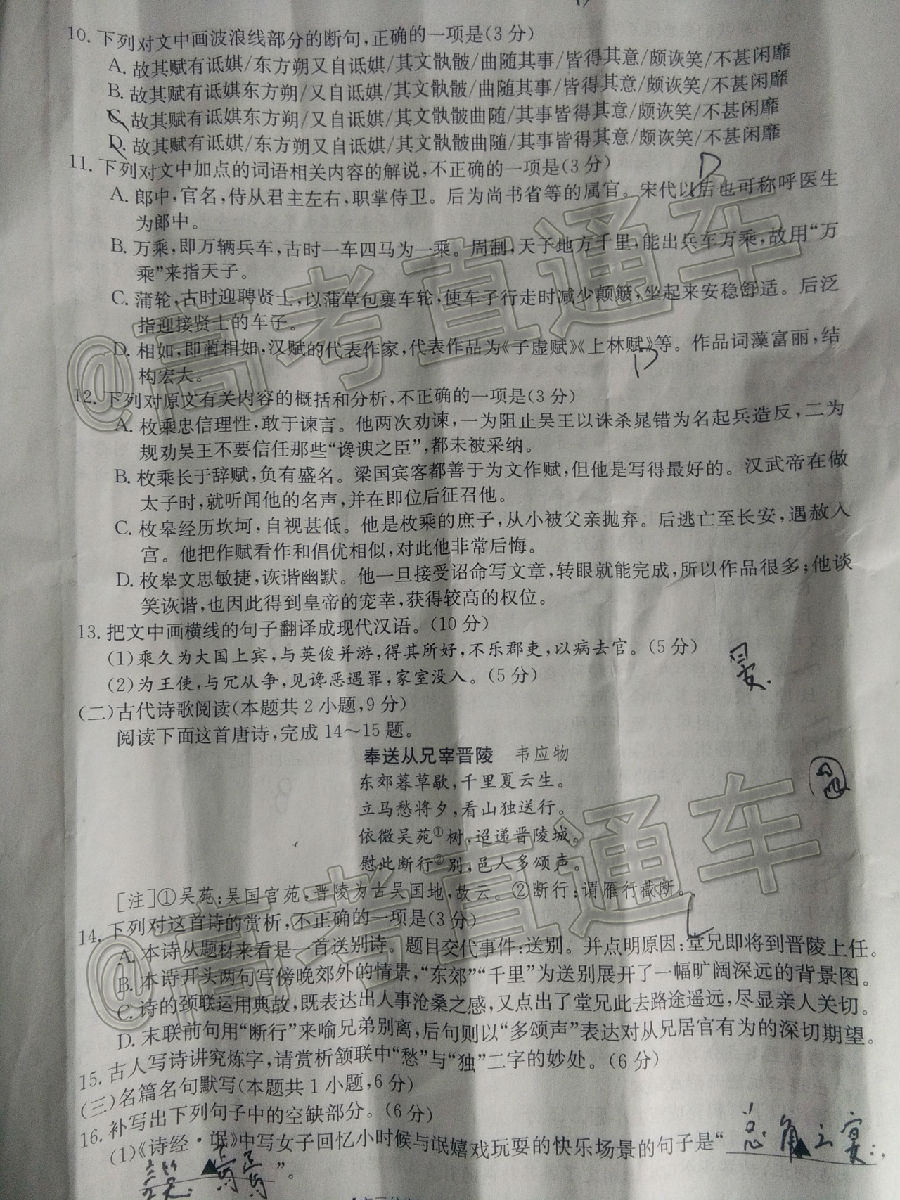 10. 下列对文中画波浪线部分的断句,正确的一项是(3分)
A. 故其赋有诋娸/东方朔又自诋娸/其文骫骳/曲随其事/皆得其意/颇诙笑/不甚闲靡
B. 故其赋有诋娸东方朔/又自诋娸/其文骫骳/曲随其事/皆得其意/颇诙笑/不甚闲靡
C. 故其赋有诋娸东方朔/又自诋娸/其文骫骳曲随/其事皆得其意/颇诙笑/不甚闲靡
D. 故其赋有诋娸/东方朔又自诋娸/其文骫骳曲随/其事皆得其意/颇诙笑/不甚闲靡
11. 下列对文中加点的词语相关内容的解说,不正确的一项是(3分)
D
A. 郎中,官名,侍从君主左右,职掌侍卫。后为尚书省等的属官。宋代以后也可称呼医生
为郎中。
B. 万乘,即万辆兵车,古时一车四马为一乘。周制,天子地方千里,能出兵车万乘,故用“万
乘”来指天子。
C. 蒲轮,古时迎聘贤士,以蒲草包裹车轮,使车子行走时减少颠簸,坐起来安稳舒适。后泛
指迎接贤士的车子。
D. 相如,即蔺相如,汉赋的代表作家,代表作品为《子虚赋》《上林赋》等。作品词藻富丽,结
构宏大。
D
12. 下列对原文有关内容的概括和分析,不正确的一项是(3分)
A. 枚乘忠信理性,敢于谏言。他两次劝谏,一为阻止吴王以诛杀晁错为名起兵造反,二为
规劝吴王不要信任那些“谗谀之臣”,都未被采纳。
B. 枚乘长于辞赋,负有盛名。梁国宾客都善于为文作赋,但他是写得最好的。汉武帝在做
太子时,就听闻他的名声,并在即位后征召他。
C. 枚皋经历坎坷,自视甚低。他是枚乘的庶子,从小被父亲抛弃。后逃亡至长安,遇赦入
宫。他把作赋看作和倡优相似,对此他非常后悔。
D. 枚皋文思敏捷,诙谐幽默。他一旦接受诏命写文章,转眼就能完成,所以作品很多;他谈
笑诙谐,也因此得到皇帝的宠幸,获得较高的权位。
13. 把文中画横线的句子翻译成现代汉语。(10分)
(1)乘久为大国上宾,与英俊并游,得其所好,不乐郡吏,以病去官。(5分)
(2)为王使,与冗从争,见谗恶遇罪,家室没入。(5分)
(二)古代诗歌阅读(本题共2小题,9分)
阅读下面这首唐诗,完成14~15题。
奉送从兄宰晋陵 韦应物
东郊暮草歇,千里夏云生。
立马愁将夕,看山独送行。
依微吴苑①树,迢递晋陵城。
慰此断行②别,邑人多颂声。
[注]①吴苑:吴国宫苑,晋陵为古吴国地,故云。②断行:谓雁行截断。
14. 下列对这首诗的赏析,不正确的一项是(3分)
A. 本诗从题材来看是一首送别诗。题目交代事件:送别。并点明原因:堂兄即将到晋陵上任。
B. 本诗开头两句写傍晚郊外的情景,“东郊”“千里”为送别展开了一幅旷阔深远的背景图。
C. 诗的颈联运用典故,既表达出人事沧桑之感,又点出了堂兄此去路途遥远,尽显亲人关切。
D. 末联前句用“断行”来喻兄弟别离,后句则以“多颂声”表达对从兄居官有为的深切期望。
15. 古人写诗讲究炼字,请赏析颔联中“愁”与“独”二字的妙处。(6分)
(三)名篇名句默写(本题共1小题,6分)
16. 补写出下列句子中的空缺部分。(6分)
(1)《诗经·氓》中写女子回忆小时候与氓嬉戏玩耍的快乐场景的句子是“总角之宴,
言笑晏晏”。
@高考直通车
@高考直通车